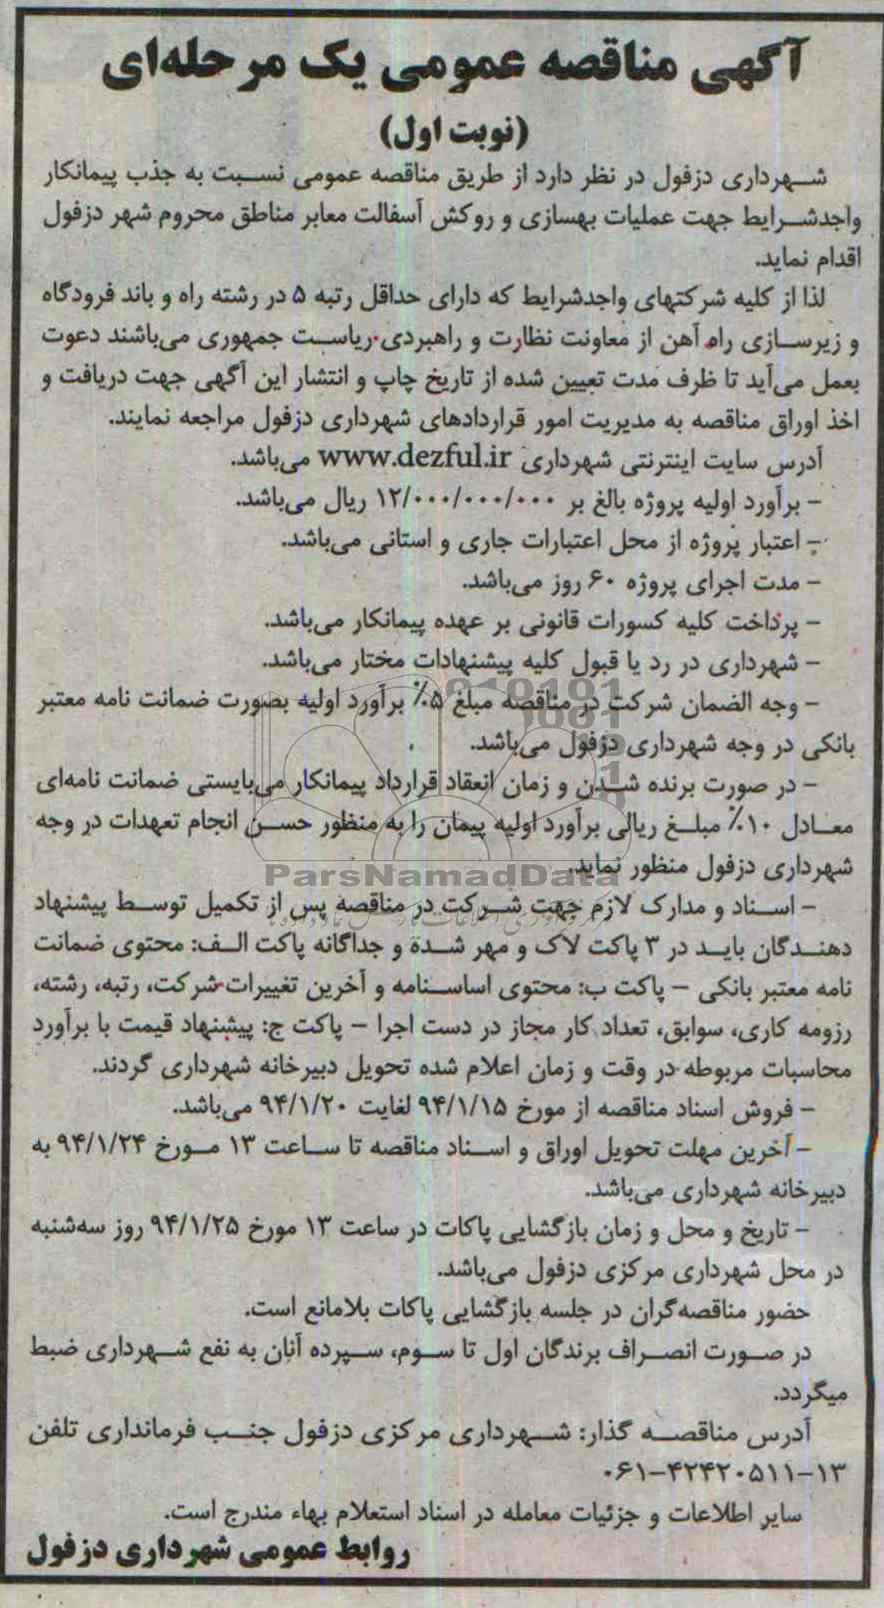 آگهی مناقصه عمومی یک مرحله‌ای
(نوبت اول)
شهرداری دزفول در نظر دارد از طریق مناقصه عمومی نسبت به جذب پیمانکار
واجدشرایط جهت عملیات بهسازی و روکش آسفالت معابر مناطق محروم شهر دزفول
اقدام نماید.
لذا از کلیه شرکتهای واجدشرایط که دارای حداقل رتبه ۵ در رشته راه و باند فرودگاه
و زیرسازی راه آهن از معاونت نظارت و راهبردی ریاست جمهوری می‌باشند دعوت
بعمل می‌آید تا ظرف مدت تعیین شده از تاریخ چاپ و انتشار این آگهی جهت دریافت و
اخذ اوراق مناقصه به مدیریت امور قراردادهای شهرداری دزفول مراجعه نمایند.
آدرس سایت اینترنتی شهرداری www.dezful.ir می‌باشد.
- برآورد اولیه پروژه بالغ بر ۱۲/۰۰۰/۰۰۰/۰۰۰ ریال می‌باشد.
- اعتبار پروژه از محل اعتبارات جاری و استانی می‌باشد.
- مدت اجرای پروژه ۶۰ روز می‌باشد.
- پرداخت کلیه کسورات قانونی بر عهده پیمانکار می‌باشد.
- شهرداری در رد یا قبول کلیه پیشنهادات مختار می‌باشد.
- وجه الضمان شرکت در مناقصه مبلغ ۵٪ برآورد اولیه بصورت ضمانت نامه معتبر
بانکی در وجه شهرداری دزفول می‌باشد.
- در صورت برنده شدن و زمان انعقاد قرارداد پیمانکار می‌بایستی ضمانت نامه‌ای
معادل ۱۰٪ مبلغ ریالی برآورد اولیه پیمان را به منظور حسن انجام تعهدات در وجه
شهرداری دزفول منظور نماید.
ParsNamadData
- اسناد و مدارک لازم جهت شرکت در مناقصه پس از تکمیل توسط پیشنهاد
دهندگان باید در ۳ پاکت لاک و مهر شده و جداگانه پاکت الف: محتوی ضمانت
نامه معتبر بانکی - پاکت ب: محتوی اساسنامه و آخرین تغییرات شرکت، رتبه، رشته،
رزومه کاری، سوابق، تعداد کار مجاز در دست اجرا - پاکت ج: پیشنهاد قیمت با برآورد
محاسبات مربوطه در وقت و زمان اعلام شده تحویل دبیرخانه شهرداری گردند.
- فروش اسناد مناقصه از مورخ ۹۴/۱/۱۵ لغایت ۹۴/۱/۲۰ می‌باشد.
- آخرین مهلت تحویل اوراق و اسناد مناقصه تا ساعت ۱۳ مورخ ۹۴/۱/۲۴ به
دبیرخانه شهرداری می‌باشد.
- تاریخ و محل و زمان بازگشایی پاکات در ساعت ۱۳ مورخ ۹۴/۱/۲۵ روز سه‌شنبه
در محل شهرداری مرکزی دزفول می‌باشد.
حضور مناقصه‌گران در جلسه بازگشایی پاکات بلامانع است.
در صورت انصراف برندگان اول تا سوم، سپرده آنان به نفع شهرداری ضبط
میگردد.
آدرس مناقصه گذار: شهرداری مرکزی دزفول جنب فرمانداری تلفن
۰۶۱-۴۲۴۲۰۵۱۱-۱۳
سایر اطلاعات و جزئیات معامله در اسناد استعلام بهاء مندرج است.
روابط عمومی شهرداری دزفول